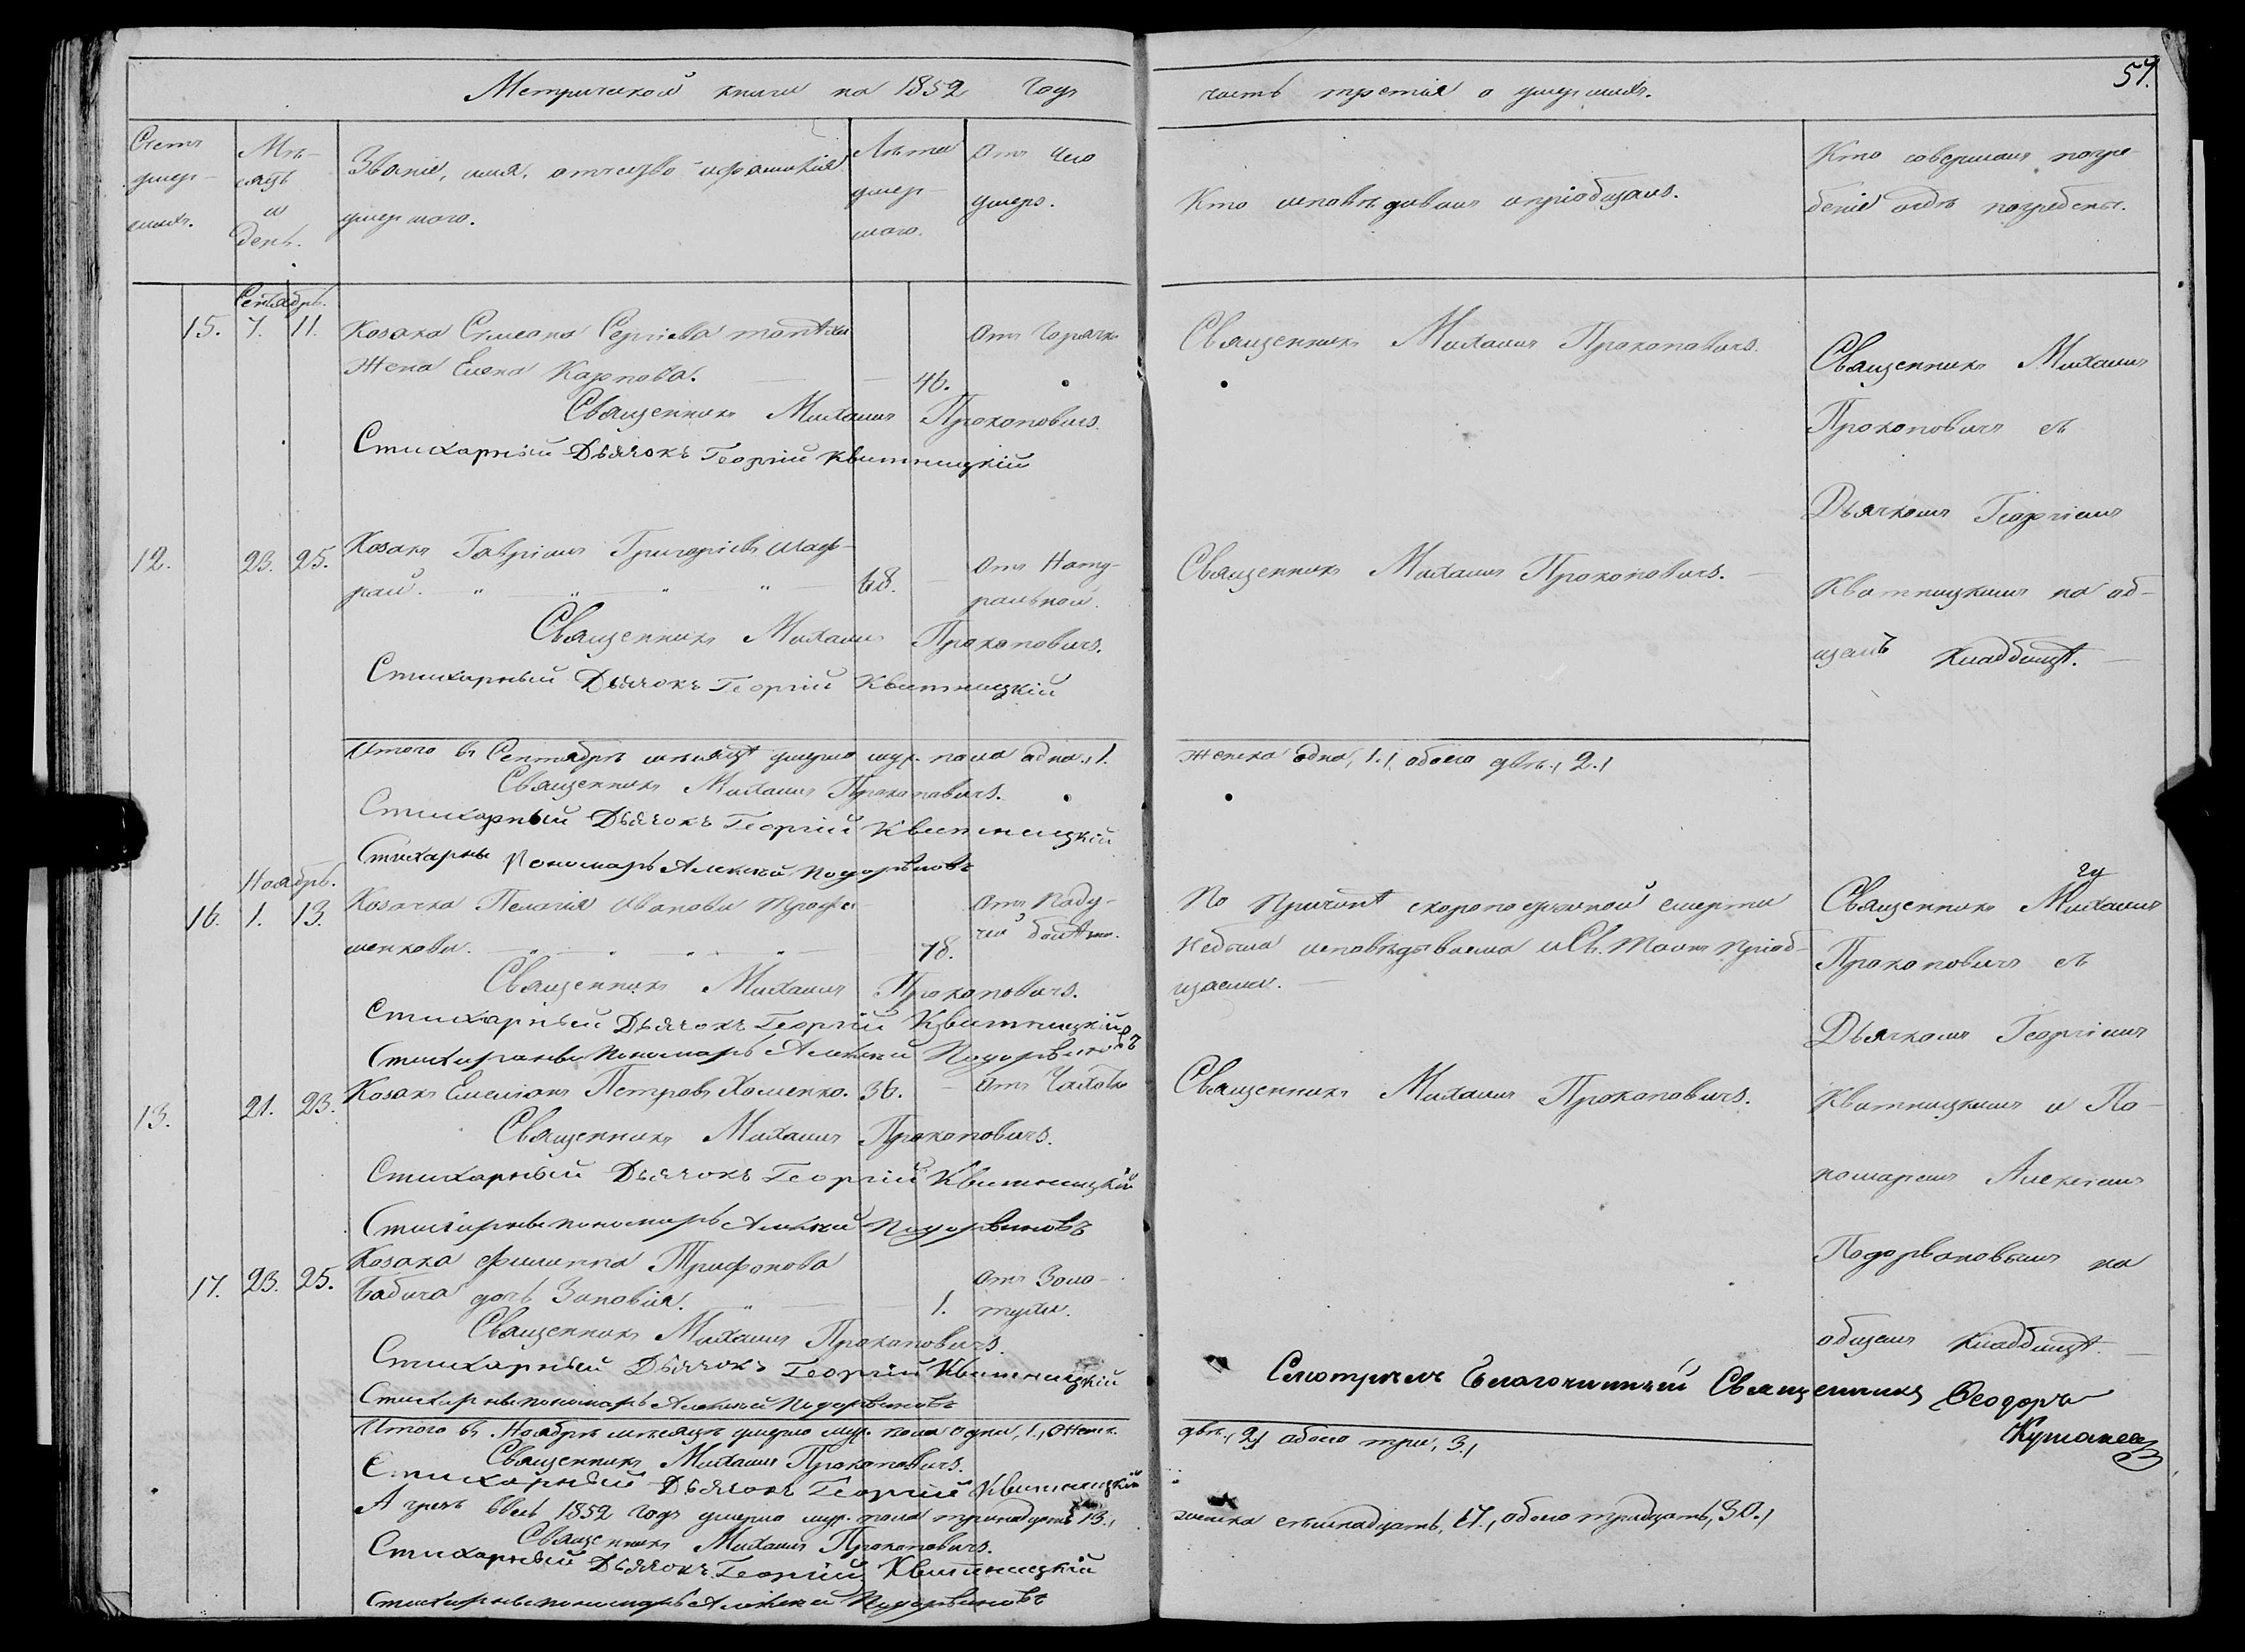 Метрической книги на 1852 Годъ
часть третія о умершихъ.
57.
Счетъ умер-шихъ.
Мѣ-сяцъ и день.
Званіе, имя, отчество и фамилія
умершаго.
Лѣта умер-шаго.
Отъ чего умеръ.
Кто исповѣдывалъ и пріобщалъ.
Кто совершалъ погре-
беніе и гдѣ погребены.
Сентябрь.
15. 7. 11. Козака Симеона Сергіева
Жена Елена Карпова. 46.
Отъ Горячки
Священникъ Михаилъ Прокоповичъ.
Стихарный Дьячокъ Георгій Квитницкій
Священникъ Михаилъ Прокоповичъ.
Священникъ Михаилъ
Прокоповичъ съ
Дьячкомъ Георгіемъ
Квитницкимъ на об-
щемъ Кладбищѣ.
12. 23. 25. Козакъ Гавріилъ Григоріевъ Шаф-
рай. 68.
Отъ Нату-
ральной.
Священникъ Михаилъ Прокоповичъ.
Стихарный Дьячокъ Георгій Квитницкій
Священникъ Михаилъ Прокоповичъ.
Итого въ Сентябрѣ мѣсяцѣ умерло муж. пола одна, 1.
женска одна, 1., обоего двѣ, 2.,
Священникъ Михаилъ Прокоповичъ.
Стихарный Дьячокъ Георгій Квитницкій
Стихарны Пономарь Алексѣй Подорвановъ
Ноябрь.
16. 1. 13. Козачка Пелагія Иванова
78.
Отъ Паду-
чей болѣзни.
Священникъ Михаилъ Прокоповичъ.
Стихарный Дьячокъ Георгій Квитницкій
Стихарны пономарь Алексѣй Подорвановъ
По Причинѣ скоропостижной смерти
небыла исповѣдываема и Св. Таинъ пріоб-
щаема.
Священникъ Михаилъ
Прокоповичъ съ
Дьячкомъ Георгіемъ
Квитницкимъ и По-
номаремъ Алексѣемъ
Подорвановымъ на
общемъ Кладбищѣ.
13. 21. 23. Козакъ Емеліанъ Петровъ Хоменко. 36. Отъ Чахотки
Священникъ Михаилъ Прокоповичъ.
Стихарный Дьячокъ Георгій Квитницкій
Стихарны пономарь Алексѣй Подорвановъ
Священникъ Михаилъ Прокоповичъ.
17. 23. 25. Козака Филиппа Трифонова
Бабича дочь Зиновія. 1.
Отъ Золо-
тухи.
Священникъ Михаилъ Прокоповичъ.
Стихарный Дьячокъ Георгій Квитницкій
Стихарны пономарь Алексѣй Подорвановъ
Смотрѣлъ Благочинный Священникъ Ѳеодоръ
Итого въ Ноябрѣ мѣсяцѣ умерло муж. пола одна, 1., женск.
двѣ, 2., обоего три, 3.,
Священникъ Михаилъ Прокоповичъ.
Стихарный Дьячокъ Георгій Квитницкій
А чрезъ ввесь 1852 годъ умерло муж. пола тринадцать, 13.,
женска семнадцать, 17., обоего тридцать, 30.,
Священникъ Михаилъ Прокоповичъ.
Стихарный Дьячокъ Георгій Квитницкій
Стихарны пономарь Алексѣй Подорвановъ